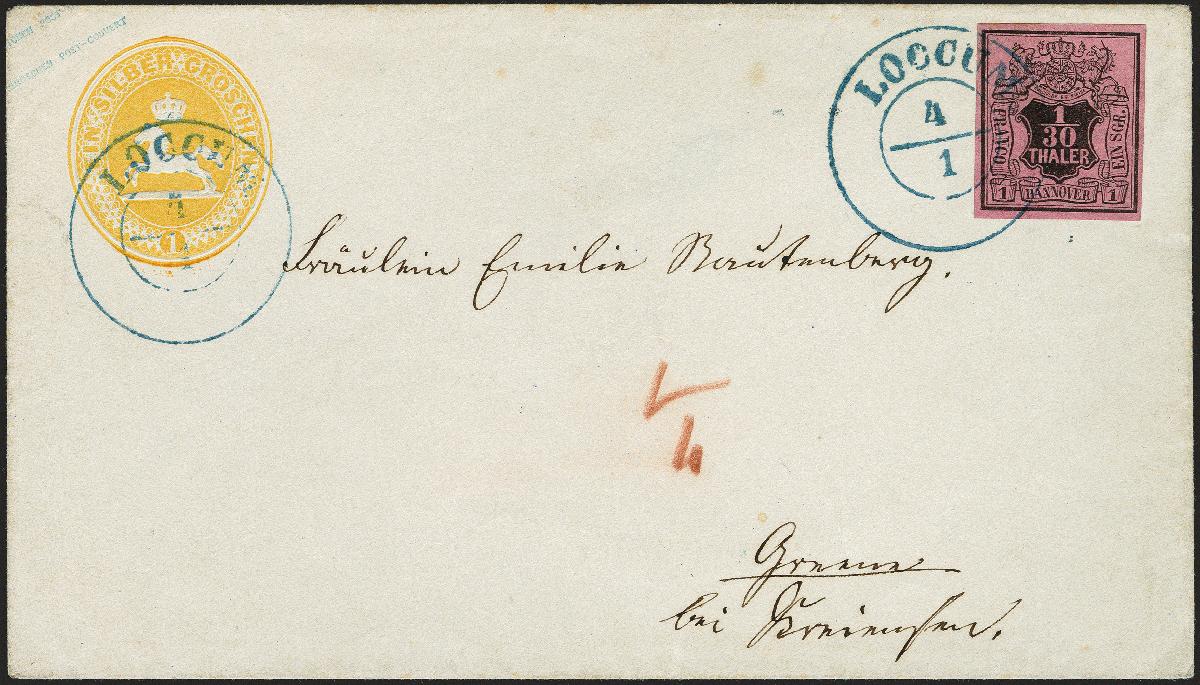 POST-COUVERT
EIN SILBER GROSCHEN
1
LOCCUM
4
1
LOCCUM
4
1
FRANCO
1
30
THALER
EIN SGR.
1 HANNOVER 1
Fräulein Emilie Rautenberg.
Greene
bei Kreiensen.